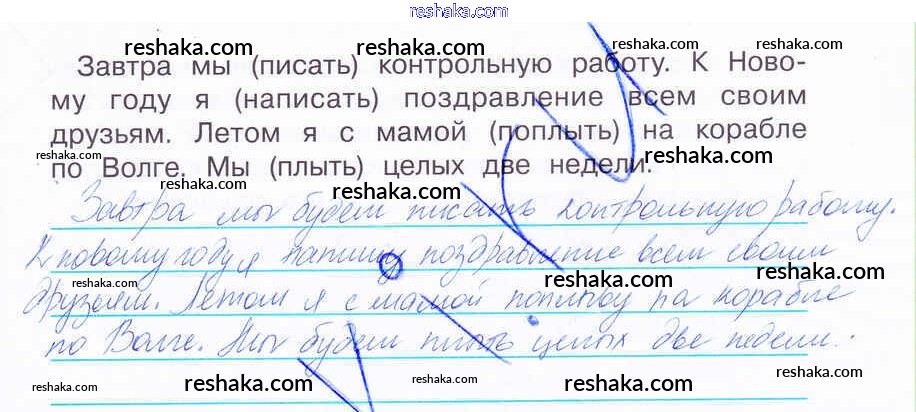 reshaka.com
reshaka.com reshaka.com reshaka.com
Завтра мы (писать) контрольную работу. К Ново-
му году я (написать) поздравление всем своим
друзьям. Летом я с мамой (поплыть) на корабле
по Волге. Мы (плыть) целых две недели.
reshaka.com reshaka.com reshaka.com reshaka.com
reshaka.com reshaka.com reshaka.com
Завтра мы будем писать контрольную работу.
К новому году я напишу поздравление всем своим
друзьям. Летом я с мамой поплыву на корабле
по Волге. Мы будем плыть целых две недели.
reshaka.com reshaka.com reshaka.com
reshaka.com reshaka.com reshaka.com reshaka.com
reshaka.com reshaka.com reshaka.com reshaka.com reshaka.com